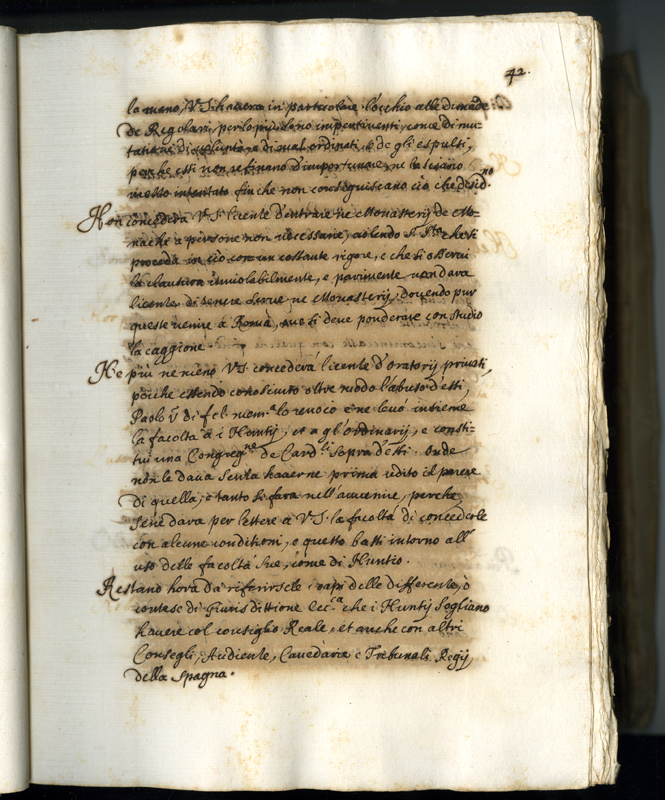 42.
la mano, V.S. haverà in particolare l'occhio alle dimãde
de Regolari, per lo più sono impertinenti, come di mu-
tatione di volontà, e di mal ordinati, e de gli espulsi,
perche essi non rifinano d'importunare, ne la lasciano
mezzo intentato finche non conseguiscano ciò che desid.no
Non concederà V.S. licenze d'entrare ne Monasterij de Mo-
nache a persone non necessarie, volendo S. S.tà che si
proceda in ciò con un costante rigore, e che si osservi
la clausura inviolabilmente, e parimente non darà
licenze di tenere serve ne Monasterij, dovendo pur
queste venire à Roma, ove si deve ponderare con studio
la caggione.
Ne più ne meno V.S. concederà licenze d'oratorij privati,
poiche essendo conosciuto oltre modo l'abuso d'essi,
Paolo V di fel. mem.a lo revocò e ne levò insieme
la facoltà à i Nuntij, et a gl'ordinarij, e consti-
tui una Congreg.ne de Card.li sopra d'essi. Onde
non le dava senza haverne prima udito il parere
di quella, e tanto si farà nell'avvenire, perche
se ne darà per lettere à V.S. la facoltà di concederle
con alcune conditioni, e questo basti intorno all'
uso delle facoltà sue, come di Nuntio.
Restano hora da riferirsele i capi delle differenze, ò
contese di giurisdittione Ecc.ca che i Nuntij sogliano
havere col consiglio Reale, et anche con altri
Consegli, Audienze, Cancellarie e Tribunali Regij
della Spagna.